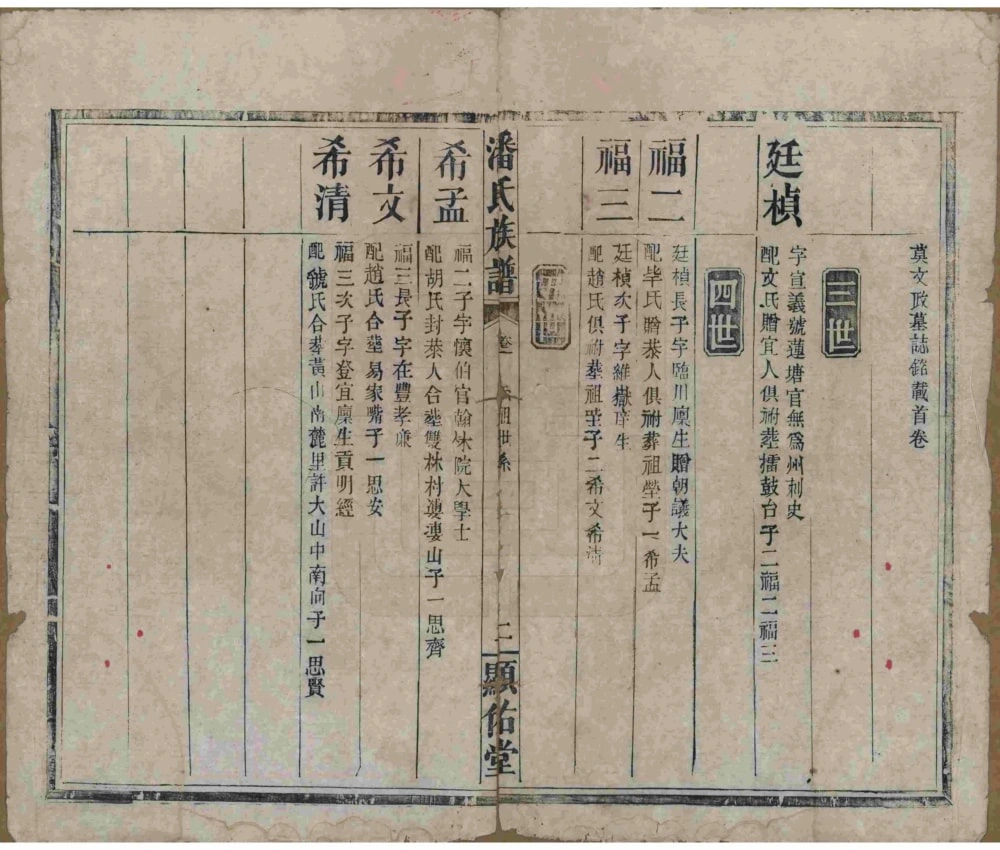 莫文政墓誌銘載首卷
三世
廷楨
字宣義號蓮塘官無為州刺史
配文氏贈宜人俱祔塟擂鼓台子二福二福三
四世
福二
廷楨長子字臨川廩生贈朝議大夫
配毕氏贈恭人俱祔葬祖塋子一希孟
福三
廷楨次子字維嶽庠生
配趙氏俱祔塟祖塋子二希文希清
潘氏族譜
卷一
世系
二
顯佑堂
希孟
福二子字懷伯官翰林院大學士
配胡氏封恭人合塟雙林村山子一思齊
希文
福三長子字在豐孝廉
配趙氏合塟易家嘴子一思安
希清
福三次子字登宜廩生貢明經
配虢氏合塟黃山南麓里許大山中南向子一思賢